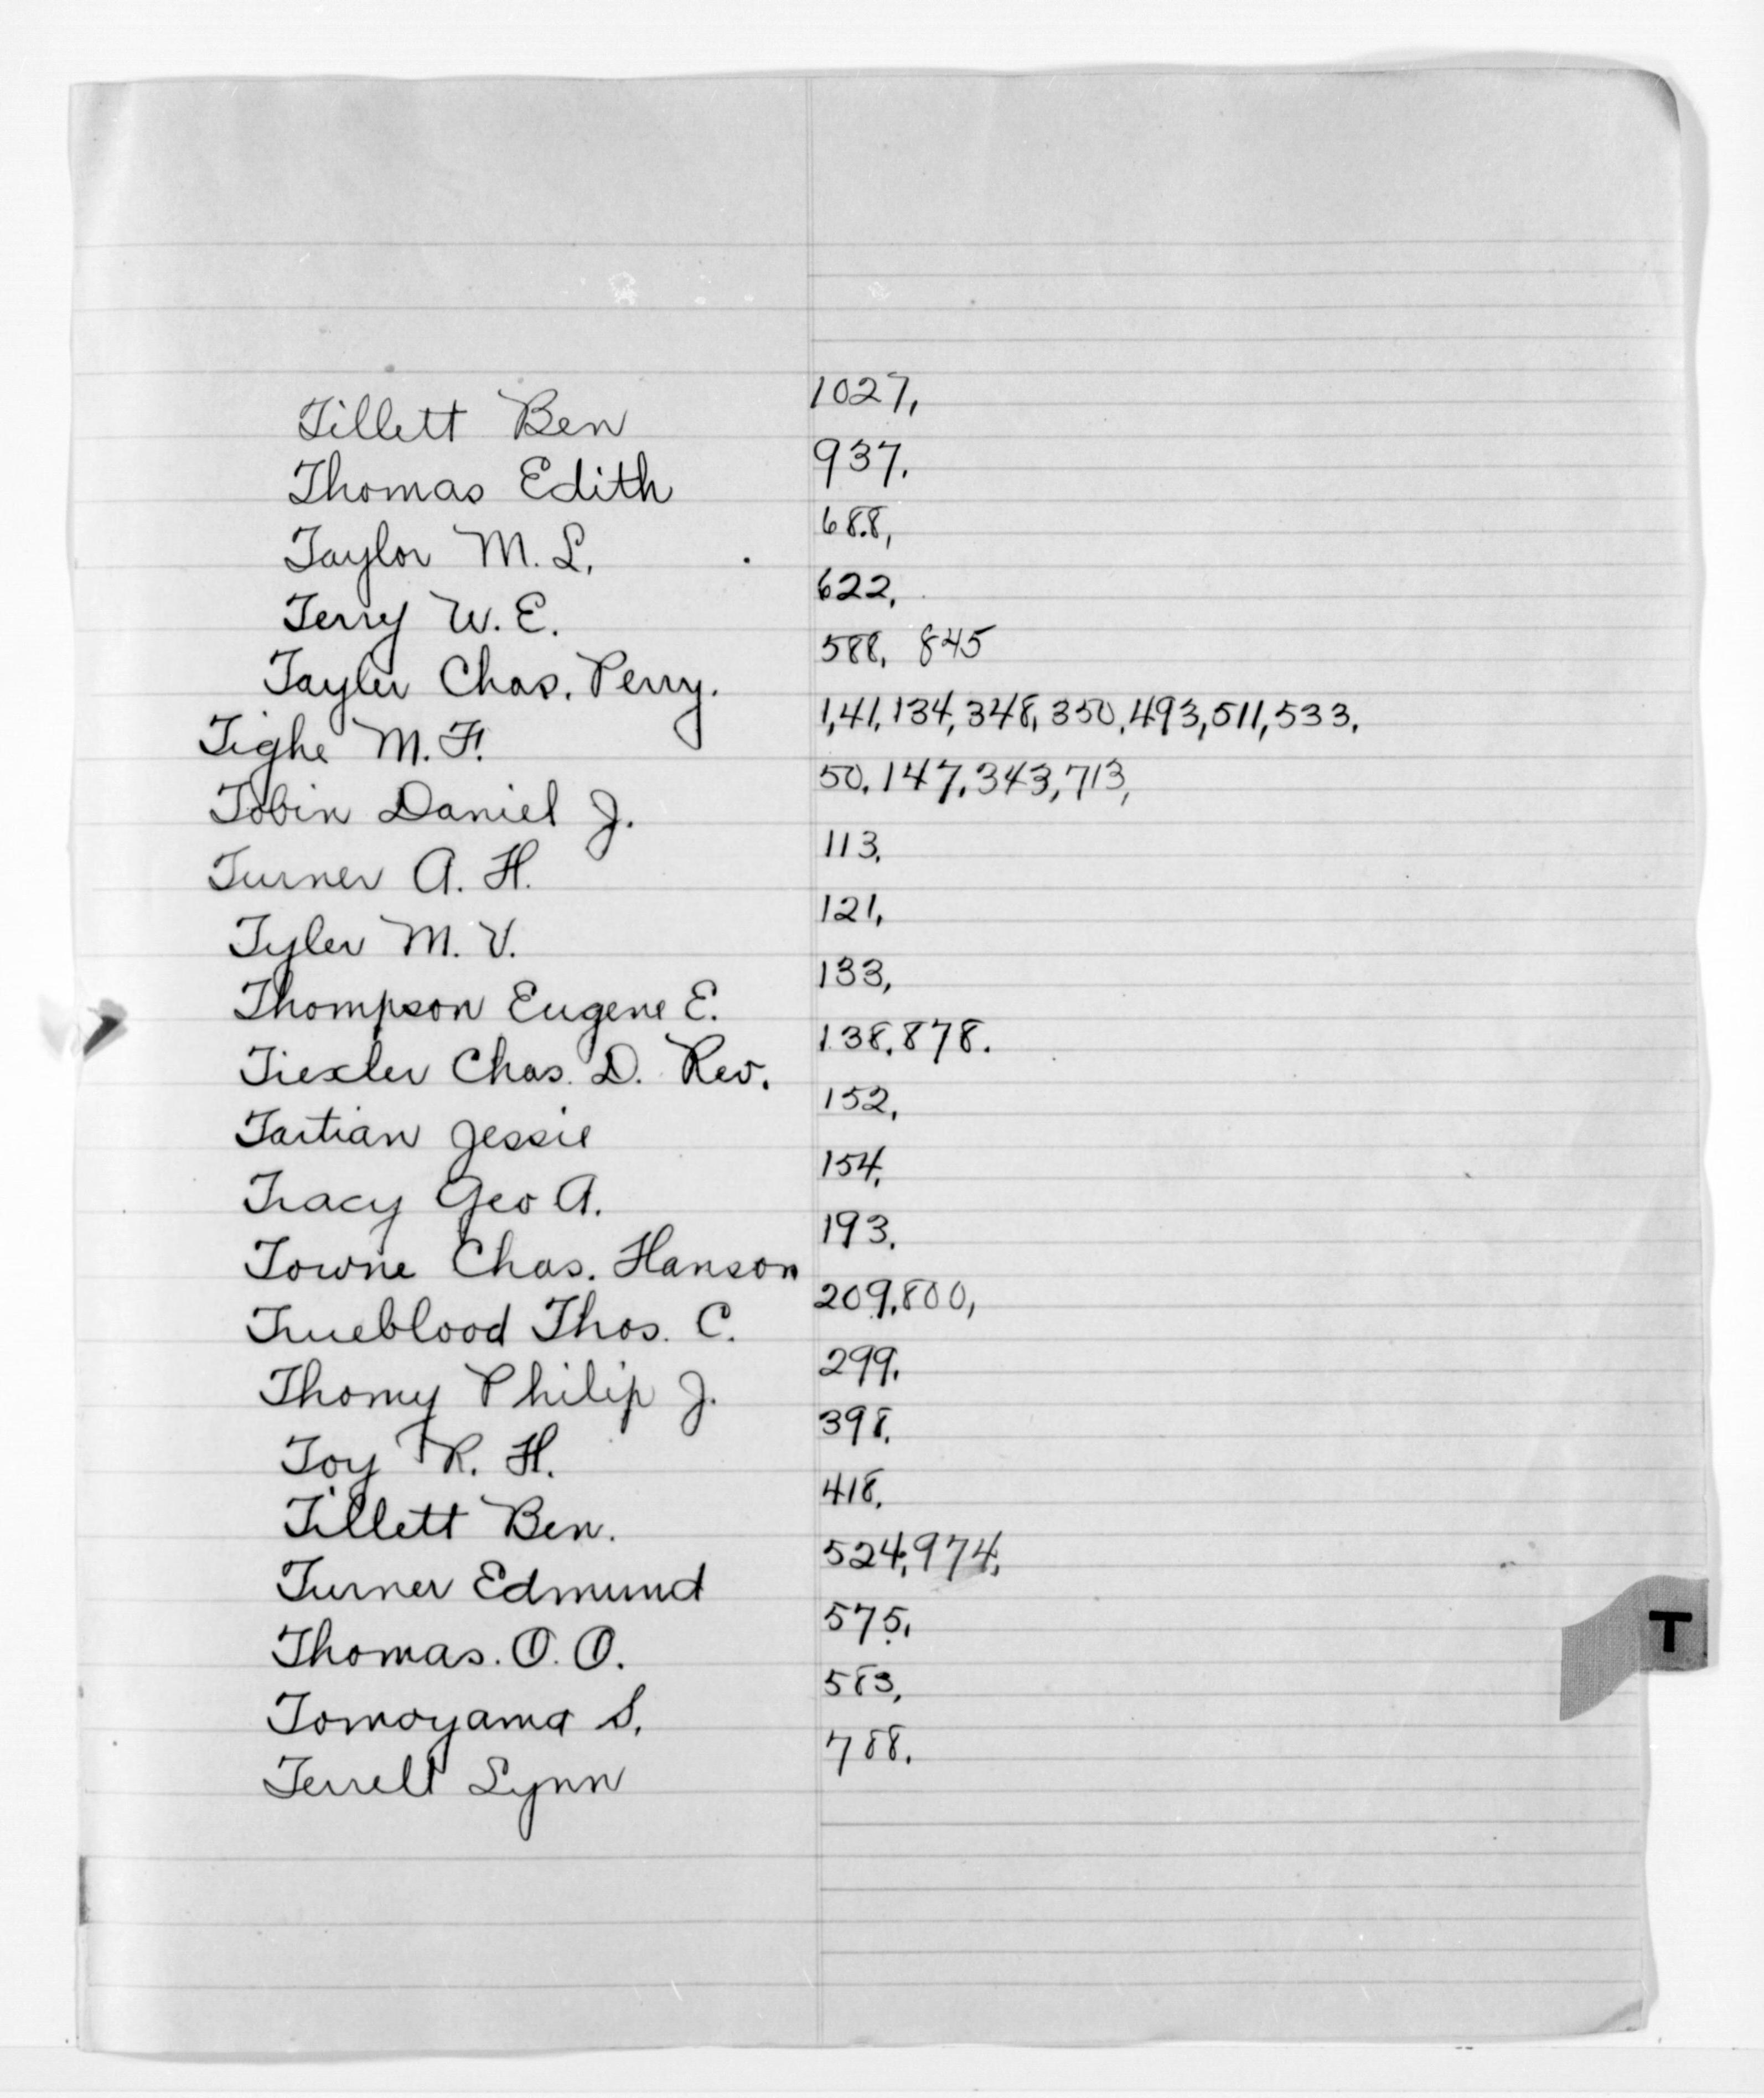 Tillett Ben 1027,
Thomas Edith 937.
Taylor M. L. 688,
Terry W. E. 622,
Tayler Chas. Perry. 588, 845
Tighe M. F. 1,41,134,348,350,493,511,533.
Tobin Daniel J. 50,147,343,713,
Turner A. H. 113,
Tyler M. V. 121,
Thompson Eugene E. 133,
Trexler Chas. D. Rev. 138,878.
Tartian Jessie 152,
Tracy Geo A. 154,
Towne Chas. Hanson 193.
Trueblood Thos. C. 209,800,
Thomy Philip J. 299,
Toy R. H. 398,
Tillett Ben. 418,
Turner Edmund 524,974,
Thomas. O. O. 575,
Tomoyama S. 583,
Terrell Lynn 788.
T